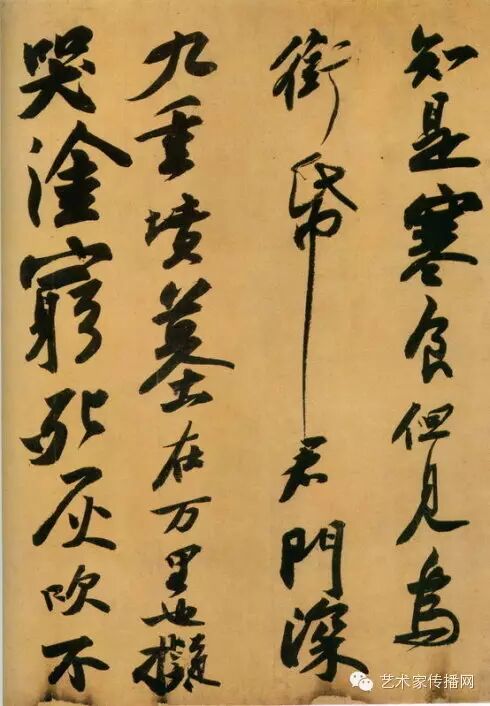 知是寒食但見烏
銜帋君門深
九重墳墓在万里也擬
哭塗窮死灰吹不
艺术家传播网